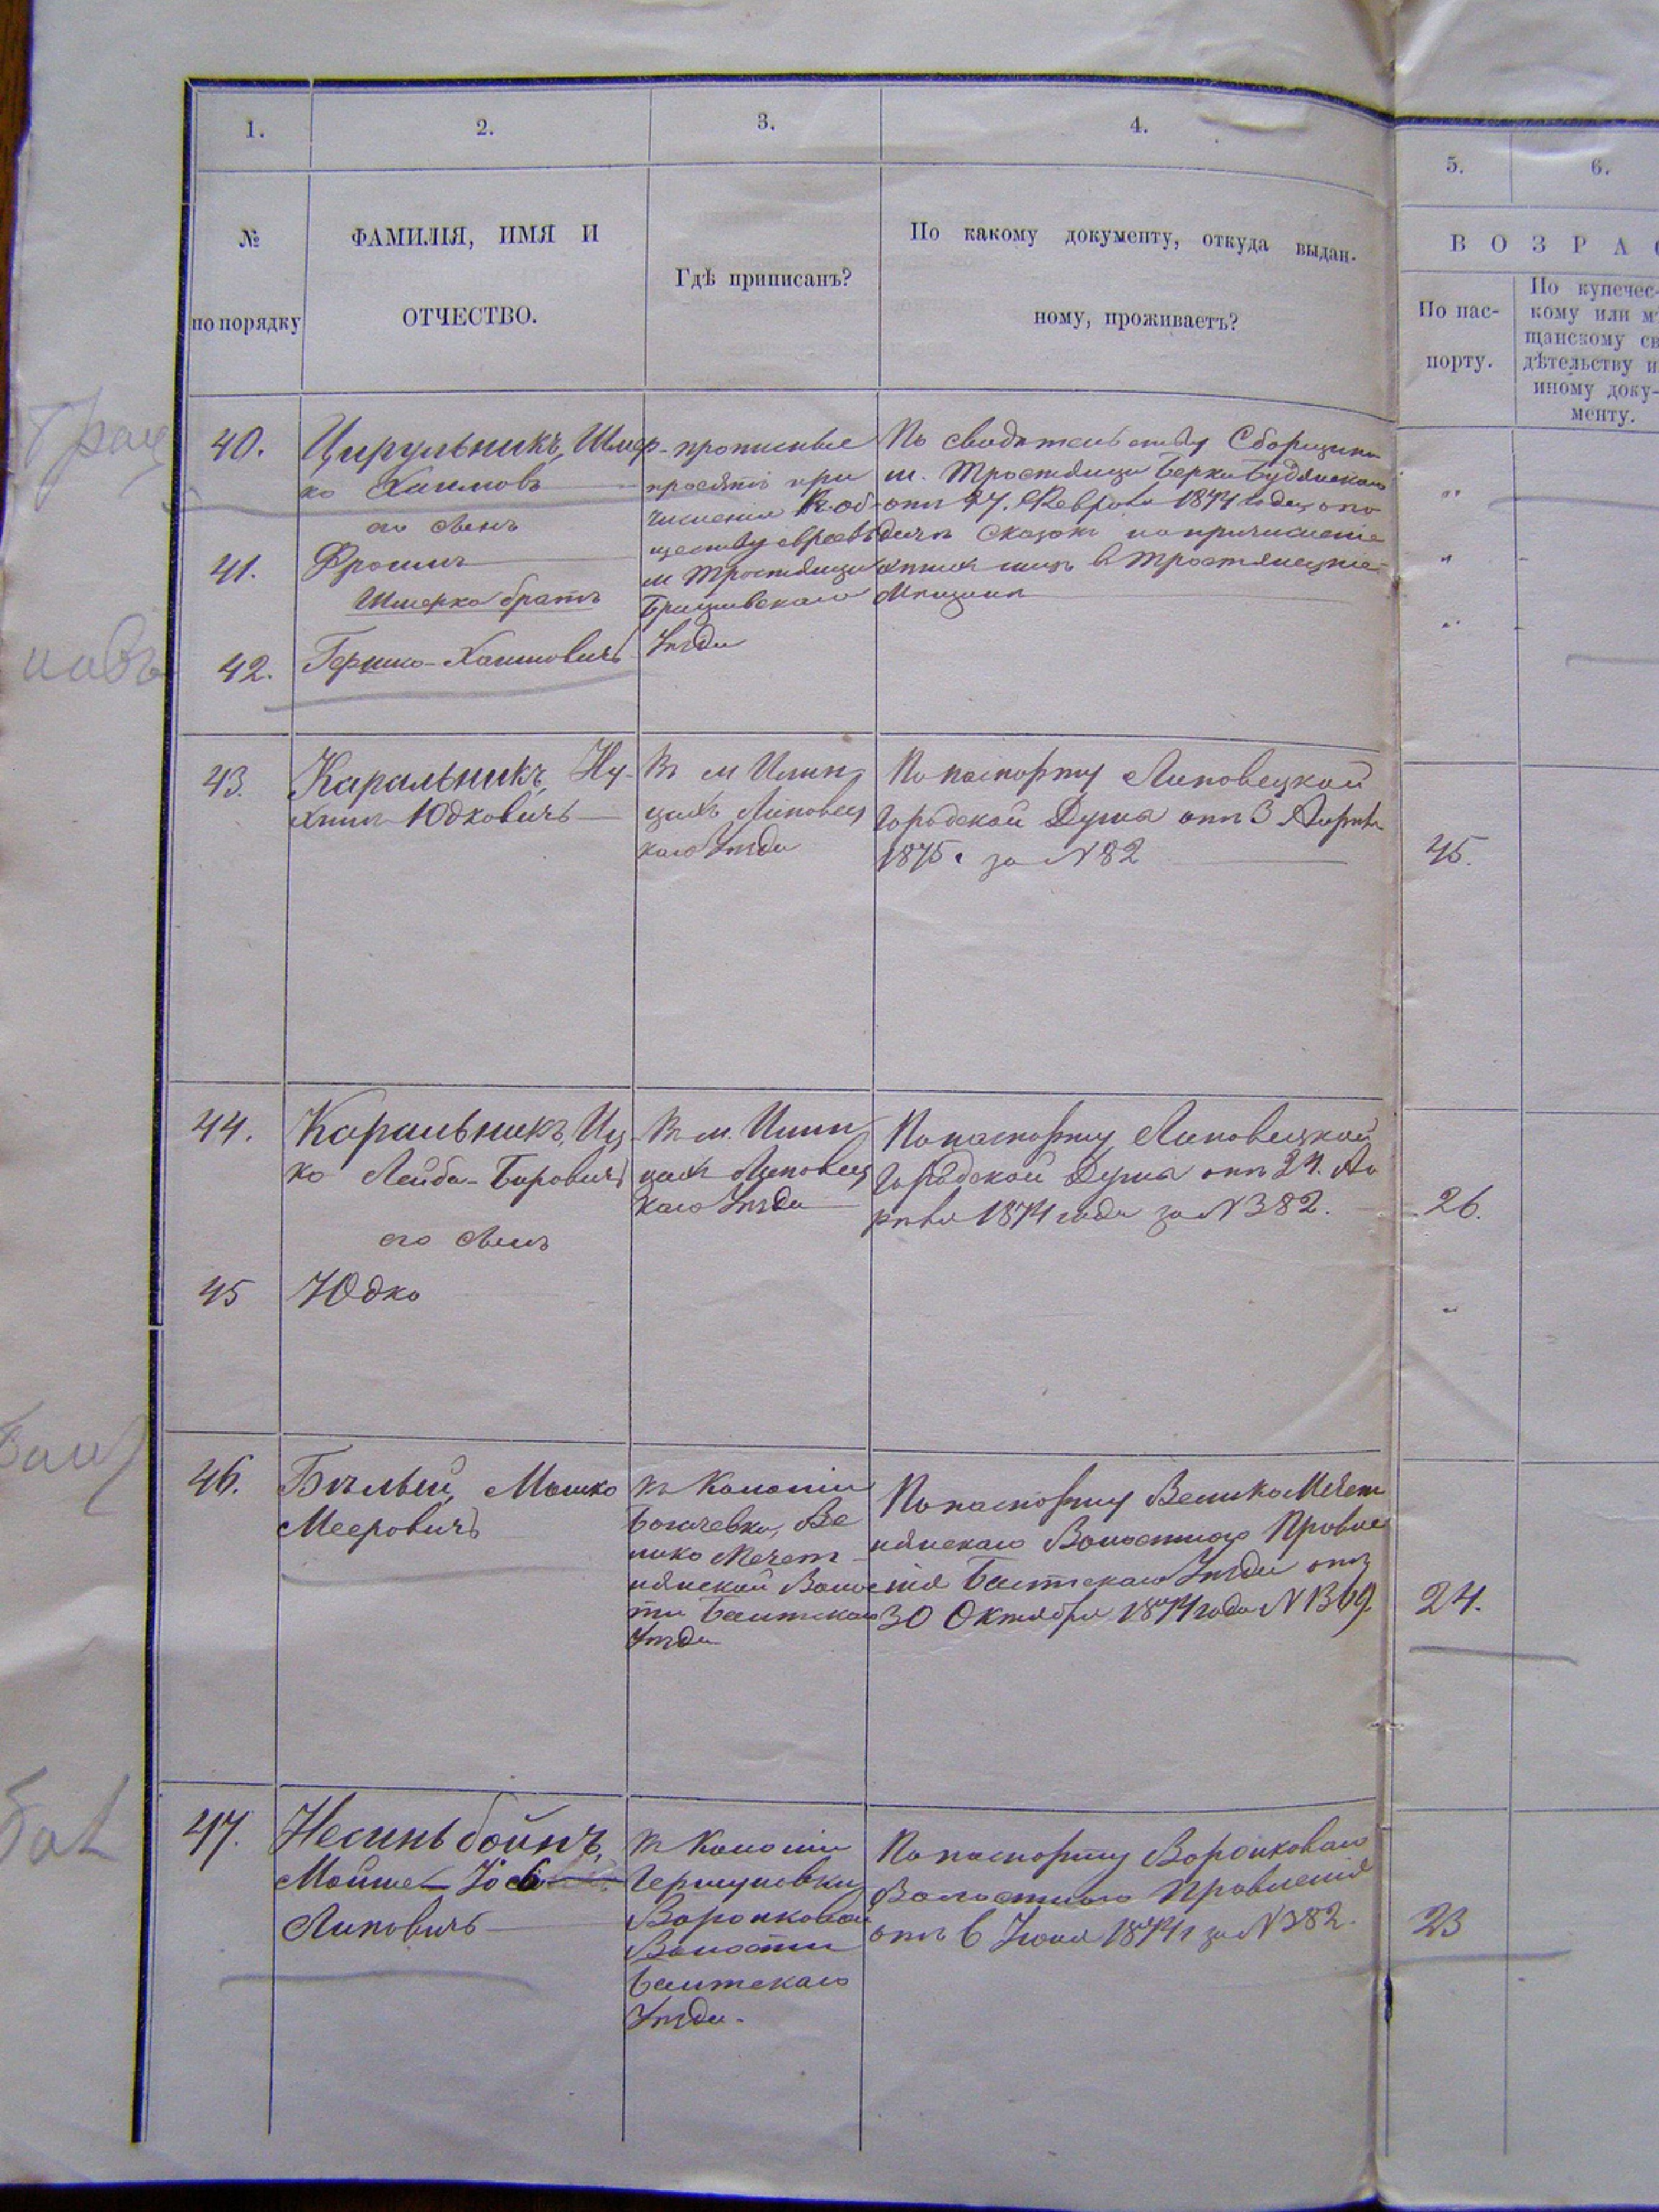 1.
2.
3.
4.
5.
6.
№
по порядку
ФАМИЛІЯ, ИМЯ И
ОТЧЕСТВО.
Гдѣ приписанъ?
По какому документу, откуда выдан-
ному, проживаетъ?
В О З Р А
По пас-
порту.
По купечес-
кому или м
щанскому св
дѣтельству и
иному доку-
менту.
40.
Цирульникъ, Шмер-
ко Хаимовъ
его сынъ
41.
Фроимъ
Шмерка братъ
42.
Гершко-Хаимовичъ
просятъ при
численія къ об-
ществу евреевъ
м Тростянца
Брацлавскаго
Уѣзда
По свидетельству Сборщика
м. Тростянца Берка
отъ 27. Февраля 1874 года, о по
дачѣ сказокъ на причисленіе
въ Тростянецкіе
Мѣщане
43.
Каральникъ, Ну-
химъ Юдковичъ
Въ м Илин
цахъ Липовец
каго Уѣзда
По паспорту Липовецкой
Городской Думы отъ 3 Апрѣля
1875 г за N 82
45.
44.
Каральникъ, Иц-
ко Лейба-Беровичъ
его сынъ
Въ м. Илин
цахъ Липовец
каго Уѣзда
По паспорту Липовецкой
Городской Думы отъ 24. Ап
рѣля 1874 года за N 382.
26.
45
Юдко
46.
Бѣлый, Мошко
Мееровичъ
въ Колоніи
Богачевка, Ве
лико Мечет
нянской Волос
ти Балтскаго
Уѣзда
По паспорту Велико Мечет
нянскаго Волостного Правле
нія Балтскаго Уѣзда отъ
30 Октября 1874 года N 1369
24.
47.
Несинъбойнъ,
Мойше
Липовичъ
въ Колоніи
Гершуновки
Воронковой
Волости
Балтскаго
Уѣзда.
По паспорту Воронковаго
Волостного Правленія
отъ 6 Іюня 1874 г за N 382.
23